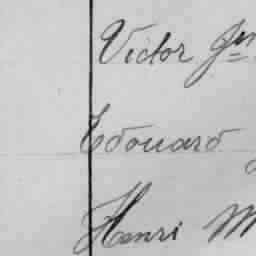 Victor Jn
Edouard
Henri M